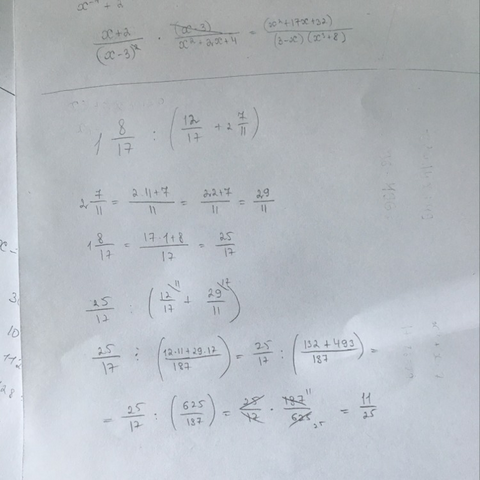 x + 2
(x+2)/(x-3)² · (x-3)/(x²+2x+4) = (x²+17x+32)/((3-x)(x³+8))
1 8/17 : (12/17 + 2 7/11)
2 7/11 = (2·11+7)/11 = (22+7)/11 = 29/11
1 8/17 = (17·1+8)/17 = 25/17
25/17 : (12/17 \11 + 29/11 \17)
25/17 : ((12·11+29·17)/187) = 25/17 : ((132+493)/187) =
= 25/17 : (625/187) = 25/17 · 187/625 11 25 = 11/25